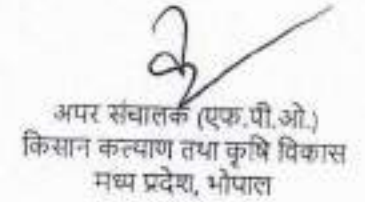 अपर संचालक (एफ.पी.ओ.)
किसान कल्याण तथा कृषि विकास
मध्य प्रदेश, भोपाल